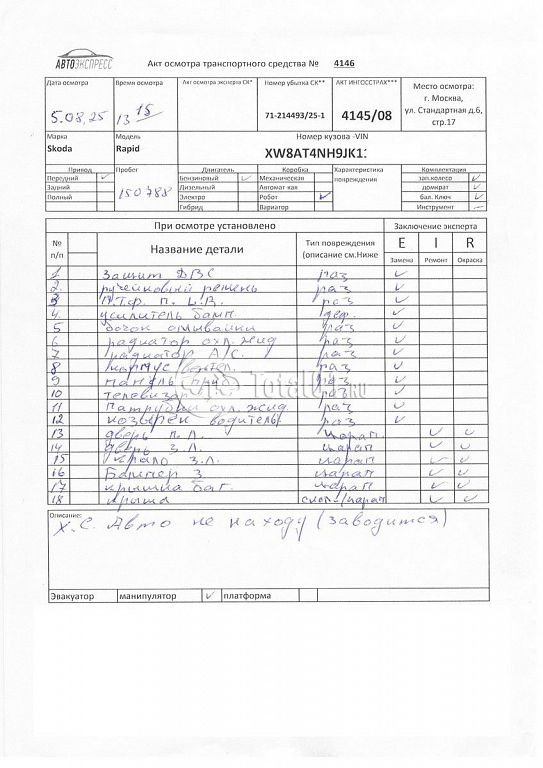 АВТОЭКСПРЕСС
Акт осмотра транспортного средства № 4146
Дата осмотра Время осмотра Акт осмотра эксперта СК* Номер убытка СК** АКТ ИНГОССТРАХ*** Место осмотра:
г. Москва,
ул. Стандартная д.6,
стр.17
5.08.25 13 15 71-214493/25-1 4145/08
Марка Модель Номер кузова -VIN
Skoda Rapid XW8AT4NH9JK1
Привод Пробег Двигатель Коробка Характеристика повреждения Комплектация
Передний Бензиновый Механическая зап.колесо
Задний 150788 Дизельный Автомат-кая домкрат
Полный Электро Робот бал. Ключ
Гибрид Вариатор Инструмент
При осмотре установлено Заключение эксперта
№ п/п Название детали Тип повреждения (описание см.Ниже E I R
Замена Ремонт Окраска
1. Защит ДВС раз
2. ручейковый ремень раз
3 ПТФ. п. раз
4. усилитель бамп. деф.
5 бачок омывайки раз
6 радиатор охл. жид раз
7 радиатор А/С. раз
8 корпус вентел. раз
9 панель раз
10 телевизор раз
11 Патрубки охл. жид. раз
12 козырек водитель раз
13 дверь п.л. царап.
14 дверь з.л. царап
15 крыло з.л. царап
16 Бампер з царап
17 крышка баг. царап
18 крыша скол./царап
Total01.ru
Описание:
Х.С. Авто не на ходу (заводится)
Эвакуатор манипулятор платформа